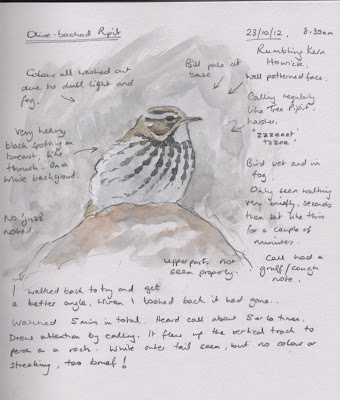 Olive-backed Pipit
23/10/12. 8.20am
Rumbling Kern
Howick
Well patterned face.
Colour all washed out
due to dull light and
fog.
Bill pale at
base
Calling regularly
like Tree Pipit.
harsher.
'zzzeeet'
Tzzee'
Very heavy
black spotting on
breast, like
thrush. On a
white background.
Bird wet and in
fog
Only seen walking
very briefly, seconds
then sat like this
for a couple of
minutes.
No 'jizz'
noted
Upperparts not
seen properly.
Call had a
gruff/cough
note.
I walked back to try and get
a better angle. When I looked back it had gone.
Watched 5 min in total. Heard call about 5 or 6 times.
Drew attention by calling. It flew up the vertical track to
perch on a rock. White outer tail seen, but no colour or
streaking, too brief!